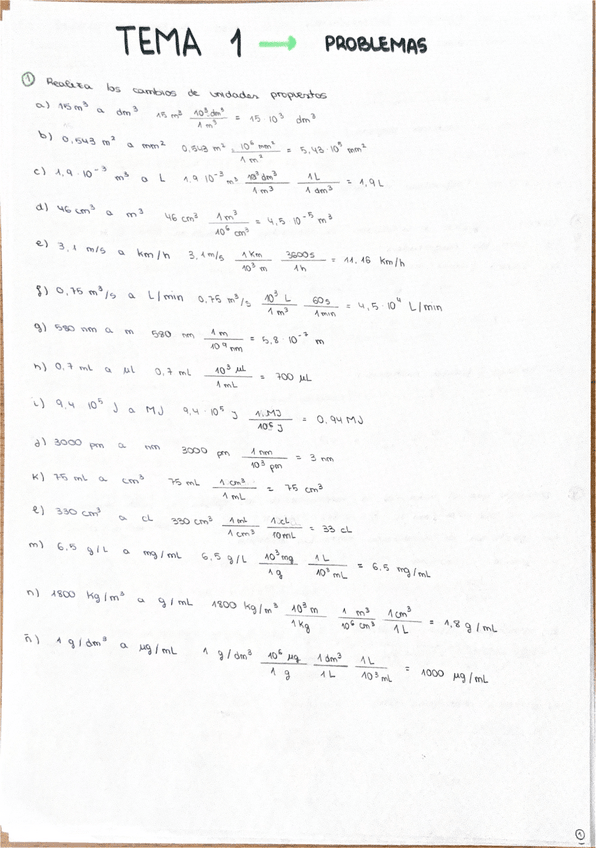 TEMA 1 → PROBLEMAS
① Realiza los cambios de unidades propuestos
a) 15 m³ a dm³ 15 m³ 10³ dm³ / 1 m³ = 15 · 10³ dm³
b) 0,543 m² a mm² 0,543 m² · 10⁶ mm² / 1 m² = 5,43 · 10⁵ mm²
c) 1,9 · 10⁻³ m³ a L 1,9 10⁻³ m³ 10³ dm³ / 1 m³ 1L / 1 dm³ = 1,9 L
d) 46 cm³ a m³ 46 cm³ 1 m³ / 10⁶ cm³ = 4,5 · 10⁻⁵ m³
e) 3,1 m/s a km/h 3,1 m/s 1 Km / 10³ m 3600 s / 1 h = 11,16 Km/h
f) 0,75 m³/s a L/min 0,75 m³/s 10³ L / 1 m³ 60 s / 1 min = 4,5 · 10⁴ L/min
g) 580 nm a m 580 nm 1 m / 10⁹ nm = 5,8 · 10⁻⁷ m
h) 0,7 mL a µL 0,7 mL 10³ µL / 1 mL = 700 µL
i) 9,4 10⁵ J a MJ 9,4 · 10⁵ J 1 MJ / 10⁶ J = 0,94 MJ
j) 3000 pm a nm 3000 pm 1 nm / 10³ pm = 3 nm
k) 75 mL a cm³ 75 mL 1 cm³ / 1 mL = 75 cm³
l) 330 cm³ a cL 330 cm³ 1 mL / 1 cm³ 1 cL / 10 mL = 33 cL
m) 6,5 g/L a mg/mL 6,5 g/L 10³ mg / 1 g 1 L / 10³ mL = 6,5 mg/mL
n) 1800 Kg/m³ a g/mL 1800 Kg/m³ 10³ m / 1 Kg 1 m³ / 10⁶ cm³ 1 cm³ / 1 L = 1,8 g/mL
ñ) 1 g/dm³ a µg/mL 1 g/dm³ 10⁶ µg / 1 g 1 dm³ / 1 L 1 L / 10³ mL = 1000 µg/mL
①